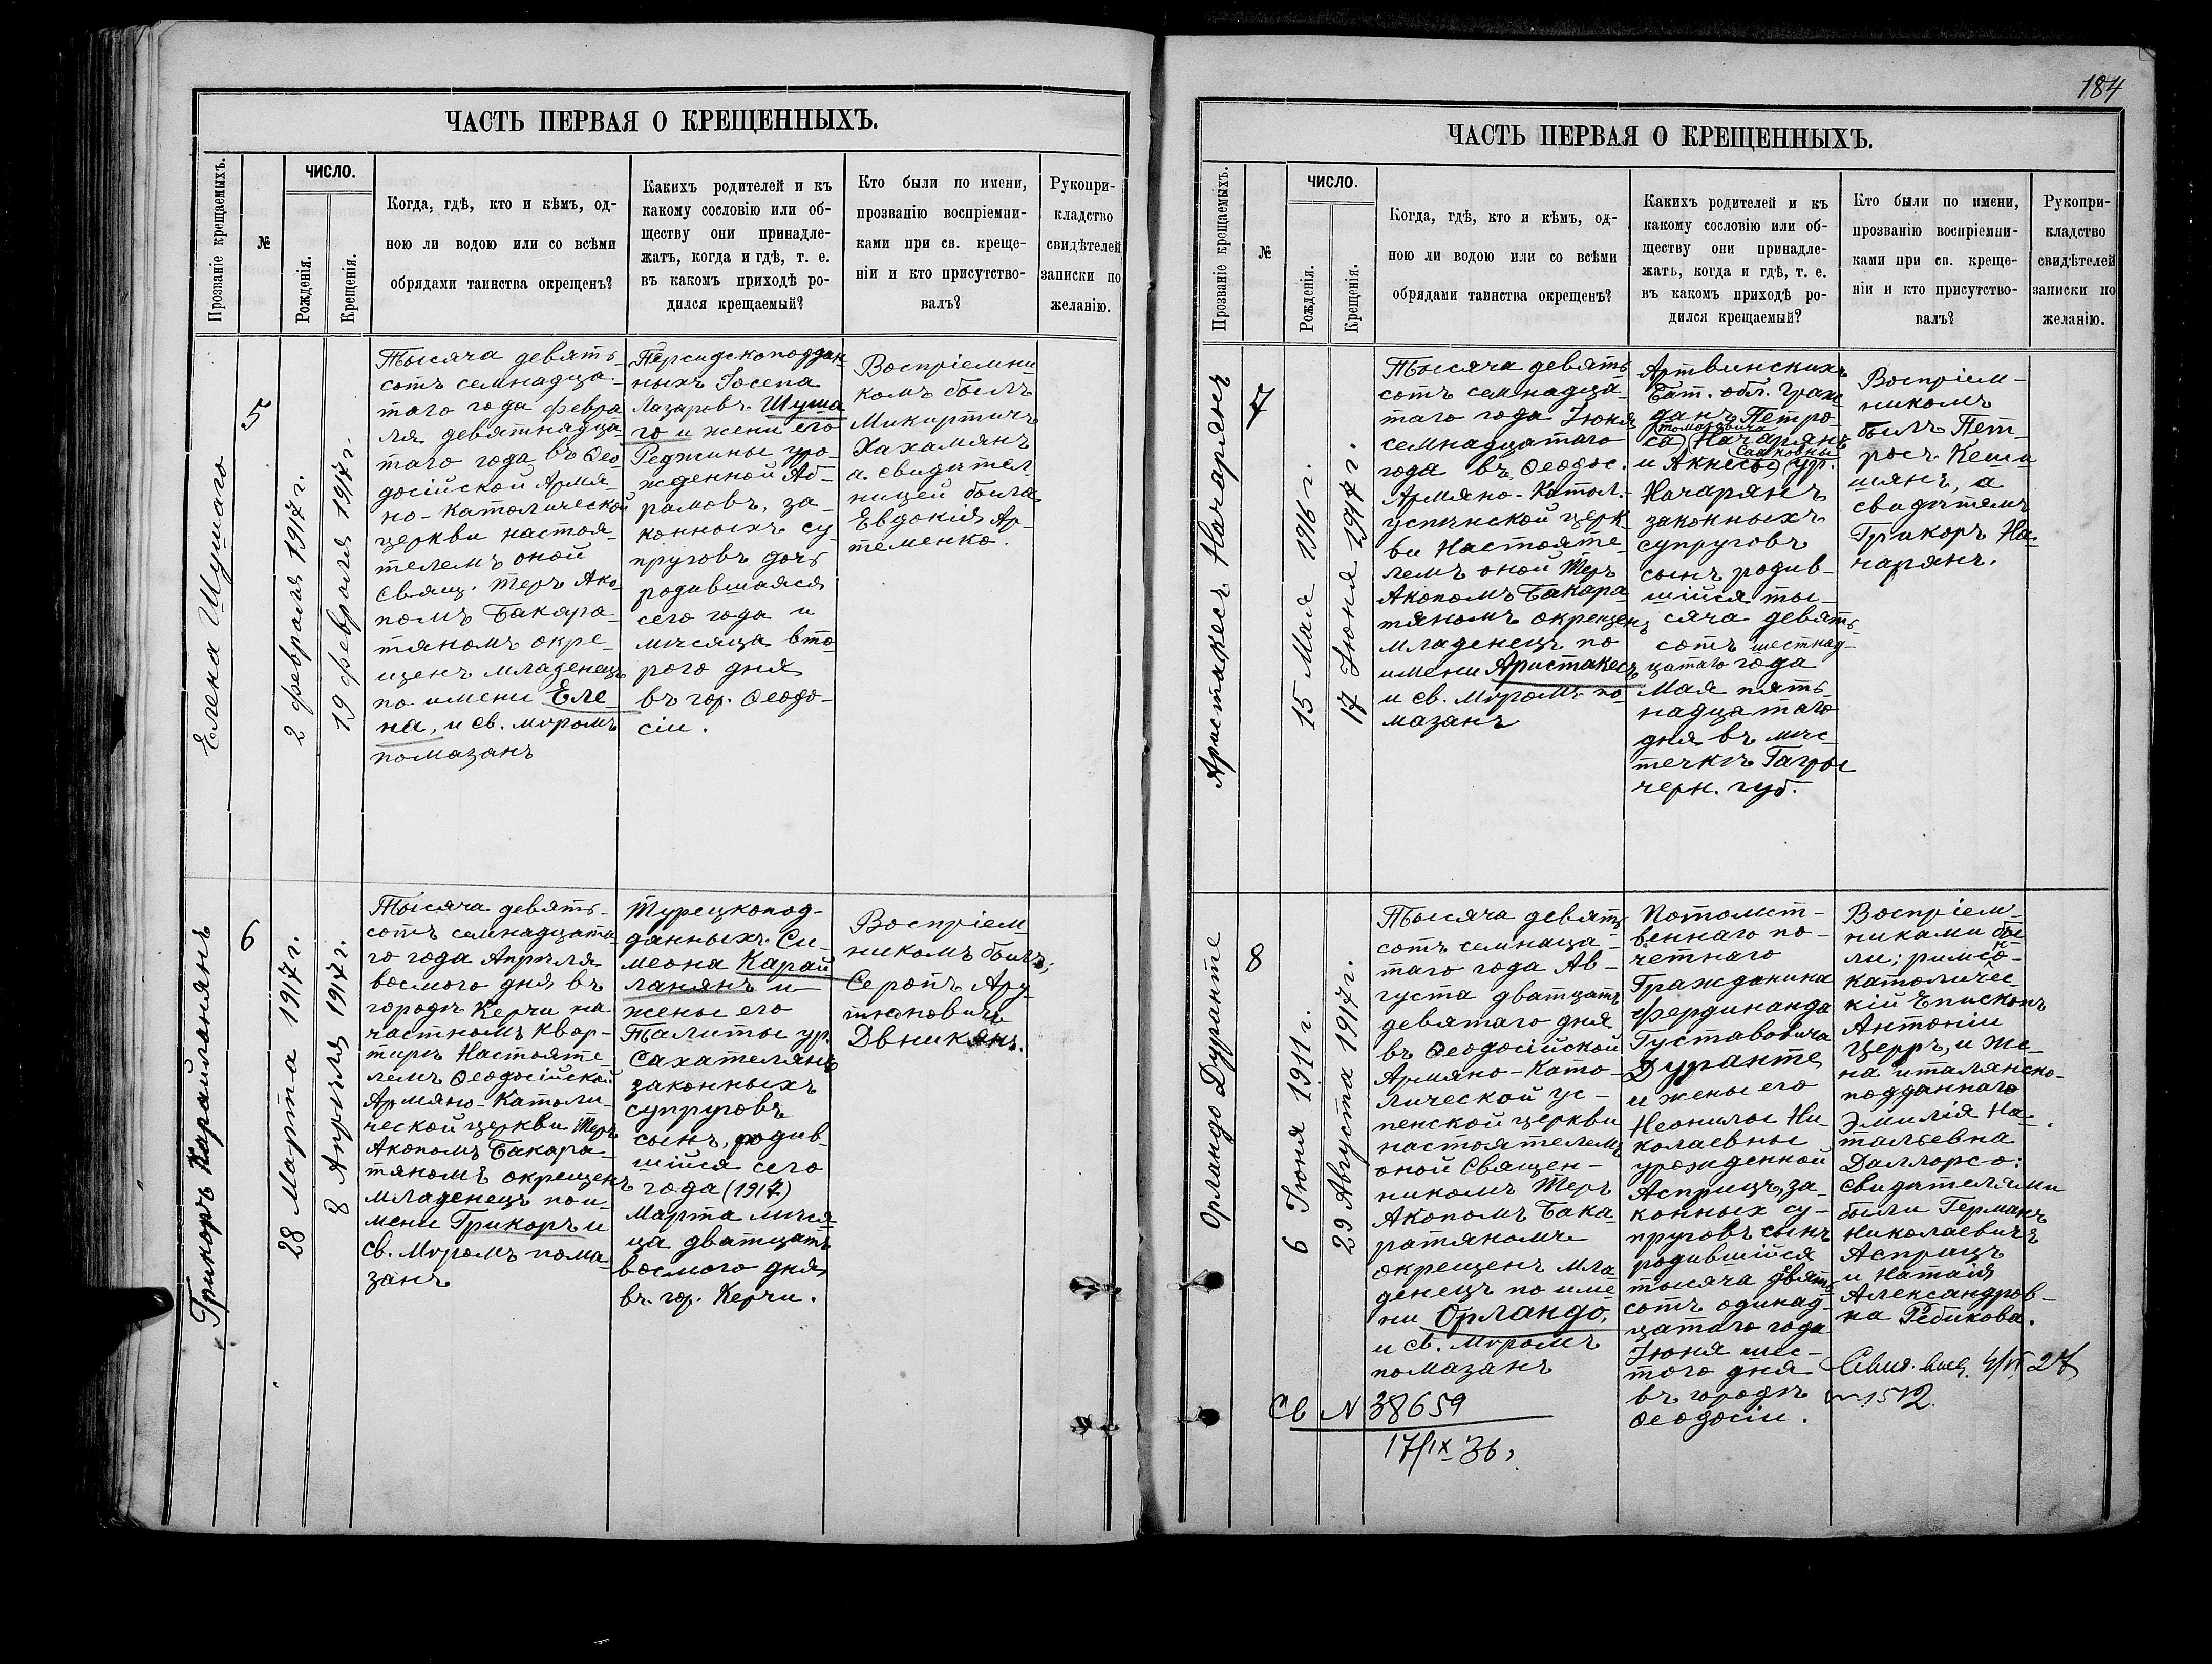 ЧАСТЬ ПЕРВАЯ О КРЕЩЕННЫХЪ.
Прозваніе крещаемыхъ.
№
ЧИСЛО.
Рожденія.
Крещенія.
Когда, гдѣ, кто и кѣмъ, од-
ною ли водою или со всѣми
обрядами таинства окрещенъ?
Какихъ родителей и къ
какому сословію или об-
ществу они принадле-
жатъ, когда и гдѣ, т. е.
въ какомъ приходѣ ро-
дился крещаемый?
Кто были по имени,
прозванію воспріемни-
ками при св. креще-
ніи и кто присутство-
валъ?
Рукопри-
кладство
свидѣтелей
записки по
желанію.
Елена Шушаго
5
2 февраля 1917 г.
19 февраля 1917 г.
Тысяча девять-
сотъ семнадца-
таго года февра
ля девятнадца
таго года въ Ѳео
досійской Армя-
но-Католической
церкви настоя-
телемъ оной
свящ. Теръ Ако-
помъ Бакара-
тяномъ окре-
щенъ младенецъ
по имени Еле-
на, и св. мѵромъ
помазанъ
Персидскоподдан
ныхъ Іосепа
Лазаровъ Шуша
го и жени его
Реджины уро-
жденной Аб-
рамовъ, за-
конныхъ су-
пруговъ дочь
родившаяся
сего года и
мѣсяца вто
рого дня
въ гор. Ѳеодо-
сіи.
Воспріемни
комъ былъ
Микиртичъ
Хахамянъ
а свидѣтел
ницей была
Евдокія Ар-
теменко.
Грикоръ Карайланянъ
6
28 Марта 1917 г.
8 Апрѣля 1917 г.
Тысяча девять-
сотъ семнадцата
го года Апрѣля
восмого дня въ
городѣ Керчи на
частномъ квар-
тирѣ Настояте
лемъ Ѳеодосійской
Армяно-Католи-
ческой церкви Теръ
Акопомъ Бакара-
тяномъ окрещенъ
младенецъ по и-
мени Грикоръ и
св. Мѵромъ пома
занъ
Турецкопод-
данныхъ Си-
меона Карай
ланянъ и
жены его
Талиты ур.
Сахателянъ
законныхъ
супруговъ
сынъ, родив-
шійся сего
года (1917)
Марта мѣся
ца дватцать
восмого дня
въ гор. Керчи.
Воспріем
никомъ былъ;
Серопъ Ару-
тюновичъ
Двникянъ.
184
ЧАСТЬ ПЕРВАЯ О КРЕЩЕННЫХЪ.
Прозваніе крещаемыхъ.
№
ЧИСЛО.
Рожденія.
Крещенія.
Когда, гдѣ, кто и кѣмъ, од-
ною ли водою или со всѣми
обрядами таинства окрещенъ?
Какихъ родителей и къ
какому сословію или об-
ществу они принадле-
жатъ, когда и гдѣ, т. е.
въ какомъ приходѣ ро-
дился крещаемый?
Кто были по имени,
прозванію воспріемни-
ками при св. креще-
ніи и кто присутство-
валъ?
Рукопри-
кладство
свидѣтелей
записки по
желанію.
Аристакесъ Начарянъ
7
15 Мая 1916 г.
17 Іюня 1917 г.
Тысяча девять
сотъ семнадца-
таго года Іюня
семнадцатаго
года въ Ѳеодос.
Армяно-Катол.-
успенской церк-
ви Настояте-
лемъ оной Теръ
Акопомъ Бакара
тяномъ окрещенъ
младенецъ по
имени Аристакесъ
и св. мѵромъ по-
мазанъ
Артвинскихъ
Бат. обл. граж
данъ Петро-
(томасовича
са) Начарянъ
и Акнесы (ур.
Начарянъ
законныхъ
супруговъ
сынъ родив-
шійся ты-
сяча девять-
сотъ шестнад-
цатаго года
Мая пять-
надцатаго
дня въ мѣс-
течкѣ Гагры
черн. губ.
Воспріем-
никомъ
былъ Пет-
росъ Кеши
шянъ, а
свидѣтель
Грикоръ На-
чарянъ.
Орландо Дуранте
8
6 Іюня 1911 г.
29 Августа 1917 г.
Тысяча девять
сотъ семнаца-
таго года Ав-
густа дватцать
девятаго дня
въ Ѳеодосійской
Армяно-Като-
лической ус-
пенской церкви
настоятелемъ
оной Священ-
никомъ Теръ
Акопомъ Бака-
ратяномъ
окрещенъ мла
денецъ по име
ни Орландо,
и св. мѵромъ
помазанъ
Св N 38659
17/IX 36,
Потомст-
веннаго по-
четнаго
Гражданина
Фердинанда
Густавовича
Дуранте
и жены его
Неонилы Ни-
колаевны
урожденной
Асприцъ, за-
конных су-
пруговъ сынъ
родившійся
тысяча девять
сотъ одинад-
цатаго года
Іюня шес-
того дня
въ городѣ
Ѳеодосіи.
Воспріем-
никами бы-
ли; римско-
католичес-
кій Епископъ
Антоніи
Церръ, и же-
на италянско-
подданнаго
Эмилія На-
тальевна
Даллорсо:
Свидѣтелями
были Германъ
Николаевичъ
Асприцъ
и Натаія
Александров-
на Рѣбикова.
4/VI 27
1512